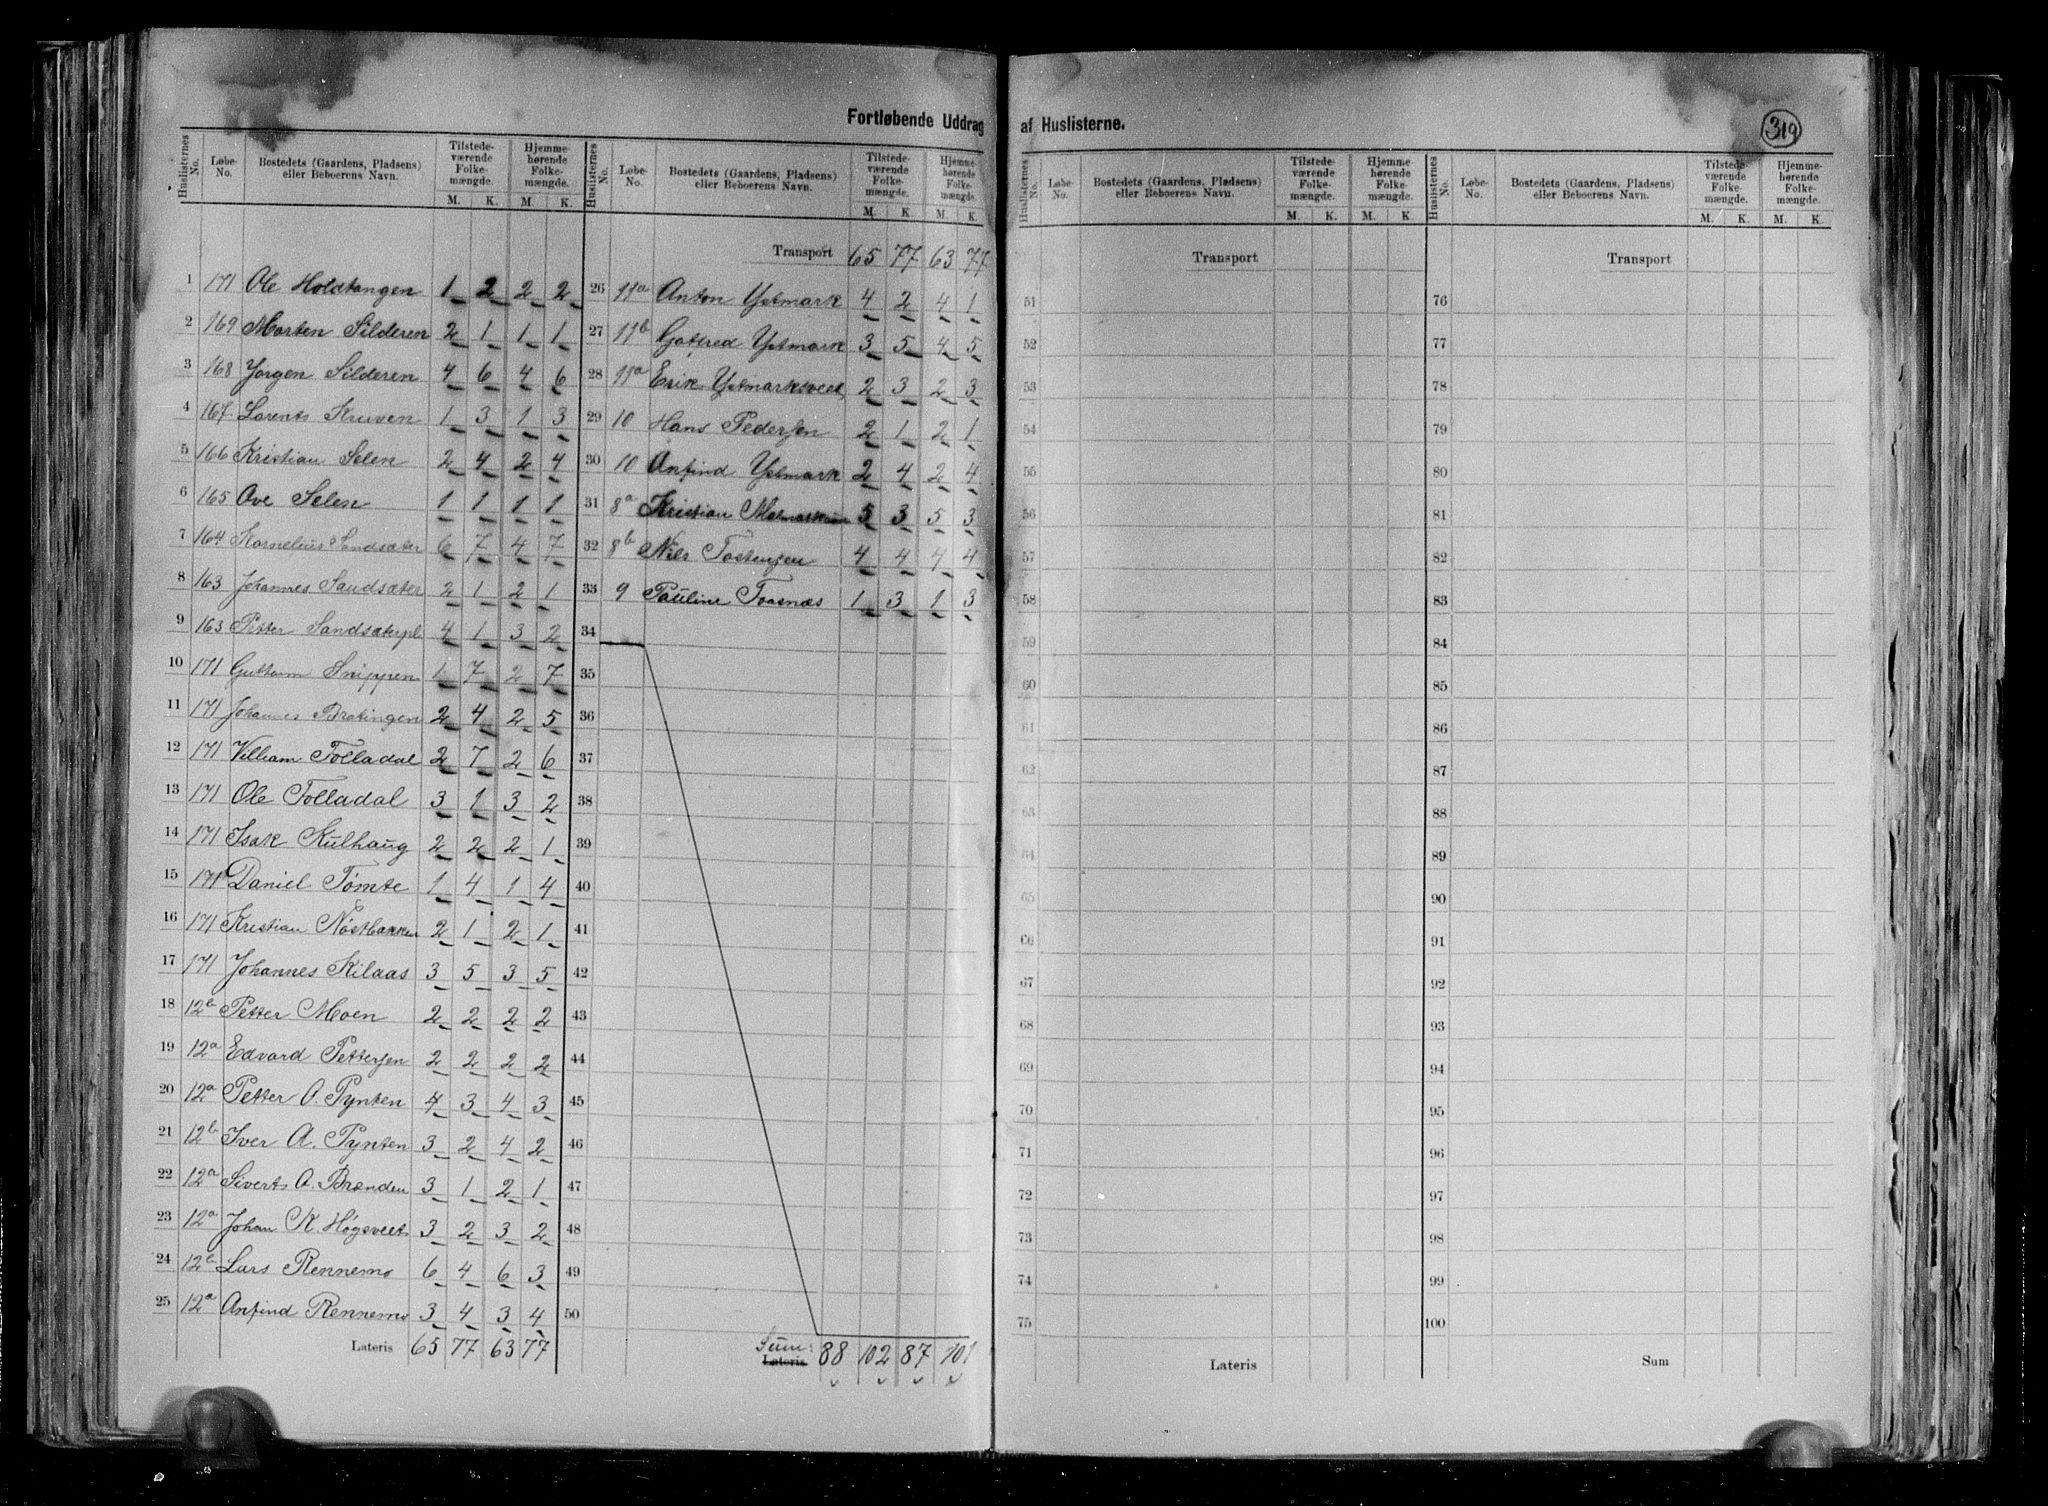 Fortløbende Uddrag af Huslisterne.
319
Huslisternes No. Løbe-No. Bostedets (Gaardens, Pladsens) eller Beboerens Navn. Tilstedeværende Folkemængde. M. K. Hjemmehørende Folkemængde. M. K.
1 171 Ole Holdtangen 1 2 2 2
2 169 Morten Silderen 2 1 1 1
3 168 Jørgen Silderen 4 6 4 6
4 167 Lorents Kruven 1 3 1 3
5 166 Kristian Selen 2 4 2 4
6 165 Ove Selen 1 1 1 1
7 164 Kornelius Sandsæter 6 7 4 7
8 163 Johannes Sandsæter 2 1 2 1
9 163 Petter Sandsæterpl. 4 1 3 2
10 171 Guttorm Snippen 1 7 2 7
11 171 Johannes Bratingen 2 4 2 5
12 171 Villiam Tolladal 2 7 2 6
13 171 Ole Tolladal 3 1 3 2
14 171 Isak Kulhaug 2 2 2 1
15 171 Daniel Tømte 1 4 1 4
16 171 Kristian Nøstbakken 2 1 2 1
17 171 Johannes Kilaas 3 5 3 5
18 12b Petter Moen 2 2 2 2
19 12a Edvard Pettersen 2 2 2 2
20 12a Petter O. Pynten 4 3 4 3
21 12b Iver A. Pynten 3 2 4 2
22 12a Siverts A. Brænden 3 1 2 1
23 12a Johan K. Høgsveet 3 2 3 2
24 12b Lars Rennemo 6 4 6 3
25 12a Anfind Rennemo 3 4 3 4
Lateris 65 77 63 77
Huslisternes No. Løbe-No. Bostedets (Gaardens, Pladsens) eller Beboerens Navn. Tilstedeværende Folkemængde. M. K. Hjemmehørende Folkemængde. M. K.
Transport 65 77 63 77
26 11a Anton Ystmark 4 2 4 1
27 11b Gotfred Ystmark 3 5 4 5
28 11a Erik Ystmarksveet 2 3 2 3
29 10 Hans Pedersen 2 1 2 1
30 10 Anfind Ystmark 2 4 2 4
31 8a Kristian 5 3 5 3
32 8b Nils Tostensen 4 4 4 4
33 9 Pauline Toasnæs 1 3 1 3
34
35
36
37
38
39
40
41
42
43
44
45
46
47
48
49
50
Sum: Lateris 88 102 87 101
Huslisternes No. Løbe-No. Bostedets (Gaardens, Pladsens) eller Beboerens Navn. Tilstedeværende Folkemængde. M. K. Hjemmehørende Folkemængde. M. K.
Transport
51
52
53
54
55
56
57
58
59
60
61
62
63
64
65
66
67
68
69
70
71
72
73
74
75
Lateris
Huslisternes No. Løbe-No. Bostedets (Gaardens, Pladsens) eller Beboerens Navn. Tilstedeværende Folkemængde. M. K. Hjemmehørende Folkemængde. M. K.
Transport
76
77
78
79
80
81
82
83
84
85
86
87
88
89
90
91
92
93
94
95
96
97
98
99
100
Sum